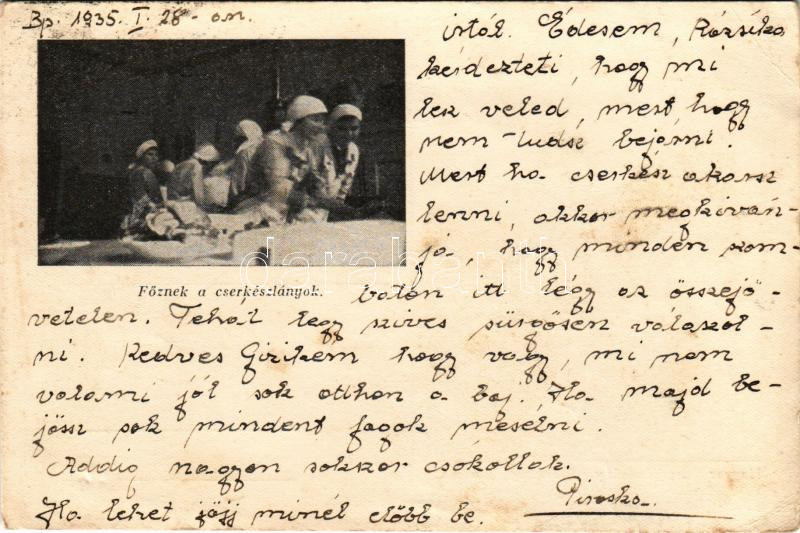 Bp. 1935. I. 28-án.
írtól. Édesem, Rózsika
kérdezteti, hogy mi
lesz veled, mert hogy
nem tudsz bejárni.
Mert ha cserkész akarsz
lenni, akkor megkiván-
ja, hogy minden szom-
Főznek a cserkészlányok.
baton itt légy az összejö-
vetelen. Tehát legy szives sürgősen válaszol-
ni. Kedves Gizikém hogy vagy, mi nem
valami jól sok otthon a baj. Ha majd be-
jössz sok mindent fogok mesélni.
Addig nagyon sokszor csókollak.
Piroska.
Ha lehet jöjj minél előbb be.
darabanth